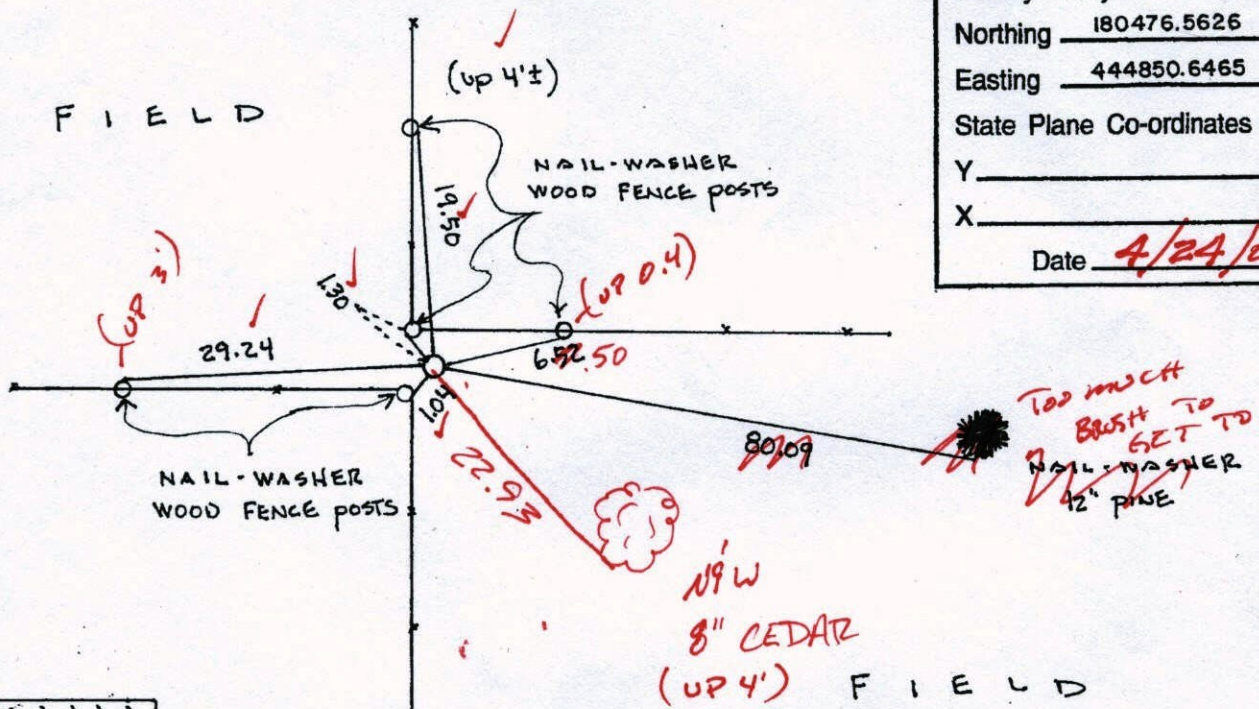 Northing 180476.5626
Easting 444850.6465
State Plane Co-ordinates
Y
X
Date 4/24/
FIELD
(UP 4'±)
NAIL-WASHER
WOOD FENCE POSTS
19.50
1.30
(UP 0.4)
29.24
6.52
.50
1.04
22.93
80.09
TOO MUCH
BRUSH TO
GET TO
NAIL-WASHER
12" PINE
NAIL-WASHER
WOOD FENCE POSTS
8" CEDAR
(UP 4')
FIELD